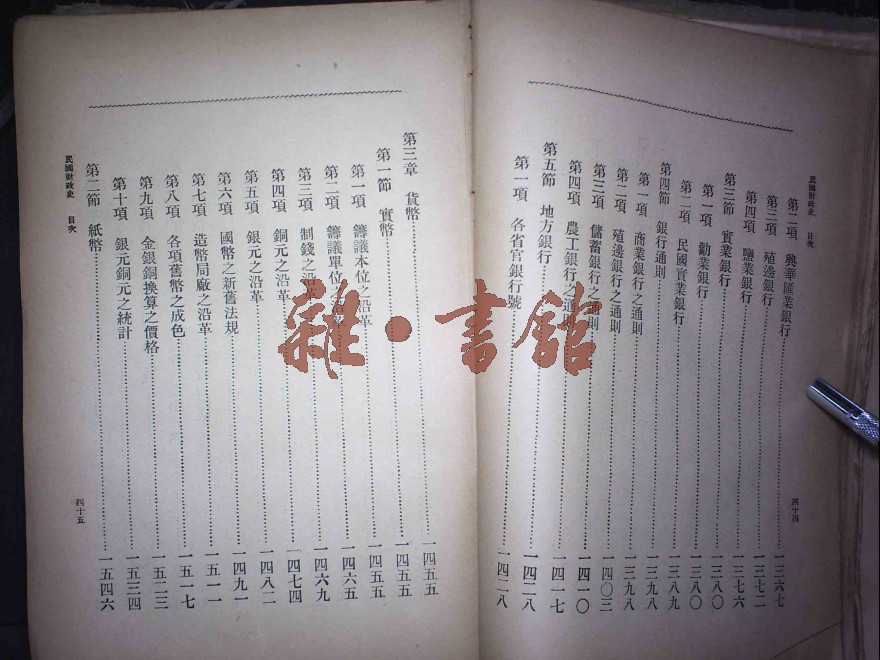 民國財政史 目次 四十四
第二項 興華匯業銀行……一三六七
第三項 殖邊銀行……一三七二
第四項 鹽業銀行……一三七六
第三節 實業銀行……一三八〇
第一項 勸業銀行……一三八〇
第二項 民國實業銀行……一三八九
第四節 銀行通則……一三九八
第一項 商業銀行之通則……一三九八
第二項 殖邊銀行之通則……一四〇三
第三項 儲蓄銀行之通則……一四一〇
第四項 農工銀行之通則……一四一七
第五節 地方銀行……一四二八
第一項 各省官銀行號……一四二八
第三章 貨幣……一四五五
第一節 實幣……一四五五
第一項 籌議本位之沿革……一四五五
第二項 籌議單位之沿革……一四六五
第三項 制錢之沿革……一四六九
第四項 銅元之沿革……一四七四
第五項 銀元之沿革……一四八二
第六項 國幣之新舊法規……一四九一
第七項 造幣局廠之沿革……一五一一
第八項 各項舊幣之成色……一五一七
第九項 金銀銅換算之價格……一五二三
第十項 銀元銅元之統計……一五三四
第二節 紙幣……一五四六
民國財政史 目次 四十五
雜·書館